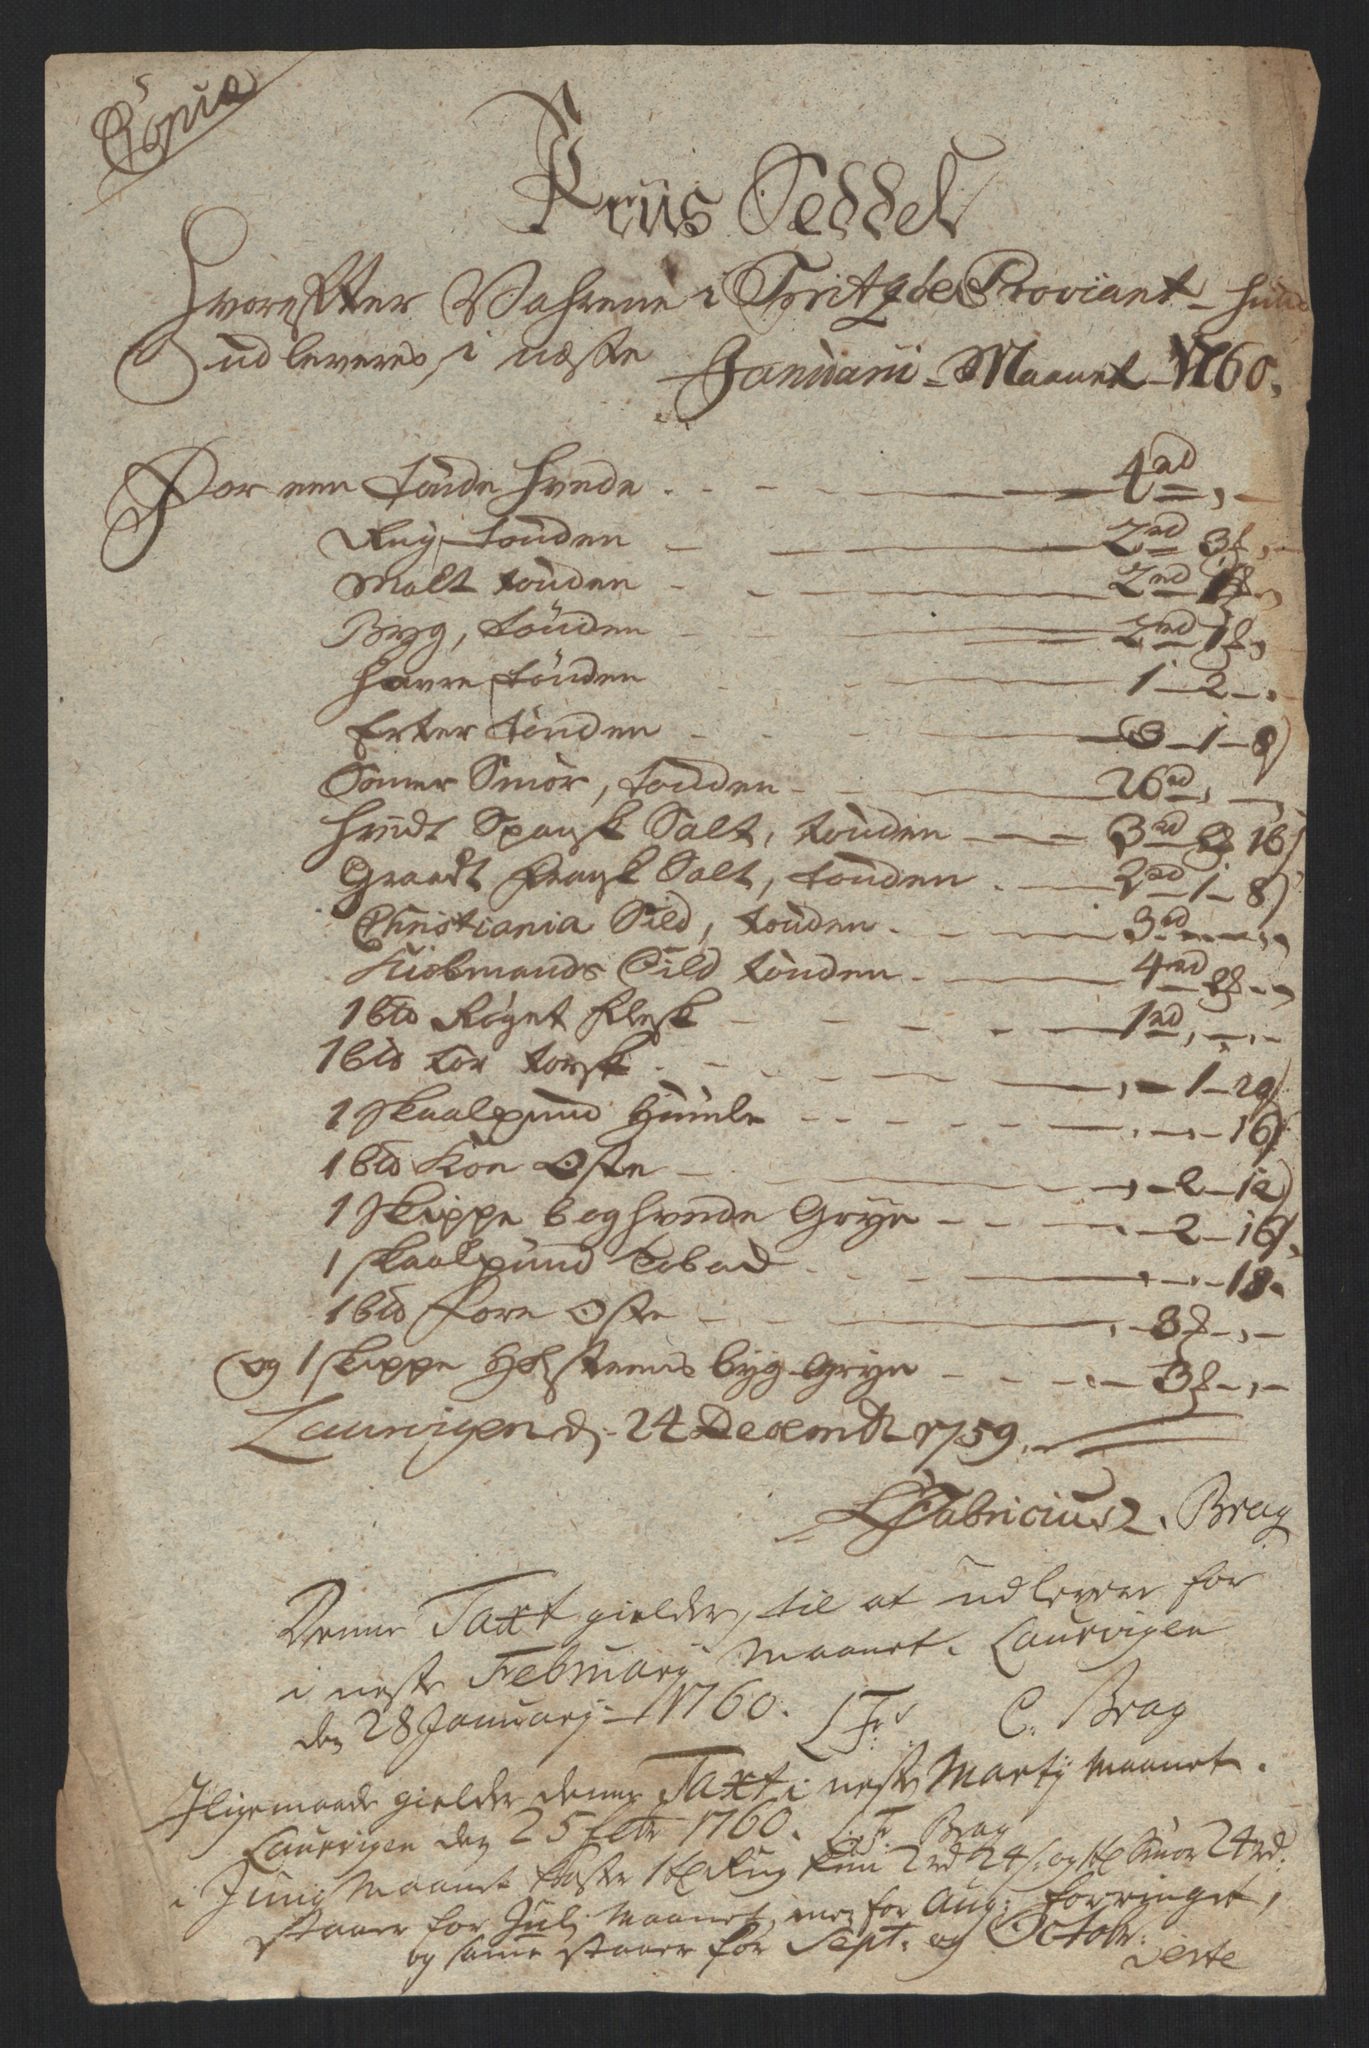 Copia
Priis Seddel
Hvorefter Vahrene i Fritzøe Proviant-huus
udleveres i næste Januarii Maanet 1760.
For een tønde hvede 4 rd
Rug tønden 2 rd 3
Malt tønden 2 rd
Byg, tønden 2 rd 1
Havre, tønden 1 2
Erter tønden 3 1 8
Somer Smør, tønden 26 rd
hvidt Spansk Salt, tønden 3 rd 16
Graadt fransk Salt, tønden 2 rd 1 8
Christiania Sild, tønden 3 rd
Kiøbmands Sild tønden 4 rd 2
1 bld Røget flesk 1 rd
1 bld tør torsk 1 20
1 skaalpund Humle 16
1 bld Kiøe Oste 2 12
1 skippe boghvede Gryn 2 16
1 skaalpund Tobac 18
1 bld fore Oste 3
og 1 skippe Holsteens byg Gryn 3
Laurvigen d. 24 Decembr 1759.
L Fabricius C. Brag
Denne Taxt gielder, til at udlevere for
i neste February Maanet. Laurvigen
den 28 January 1760. L Fr C. Brag
Iligemaade gielder denne Taxt i neste Marty Maanet.
Laurvigen den 25 febr 1760. L. F. Brag
i Juny Maanet koster 1 td Rug kun 2 rd 24 s. og 1 td Smør 24 rd.
staaer for July Maanet, men for Aug: forringet,
og samme staaer for Sept. og Octobr.
verte